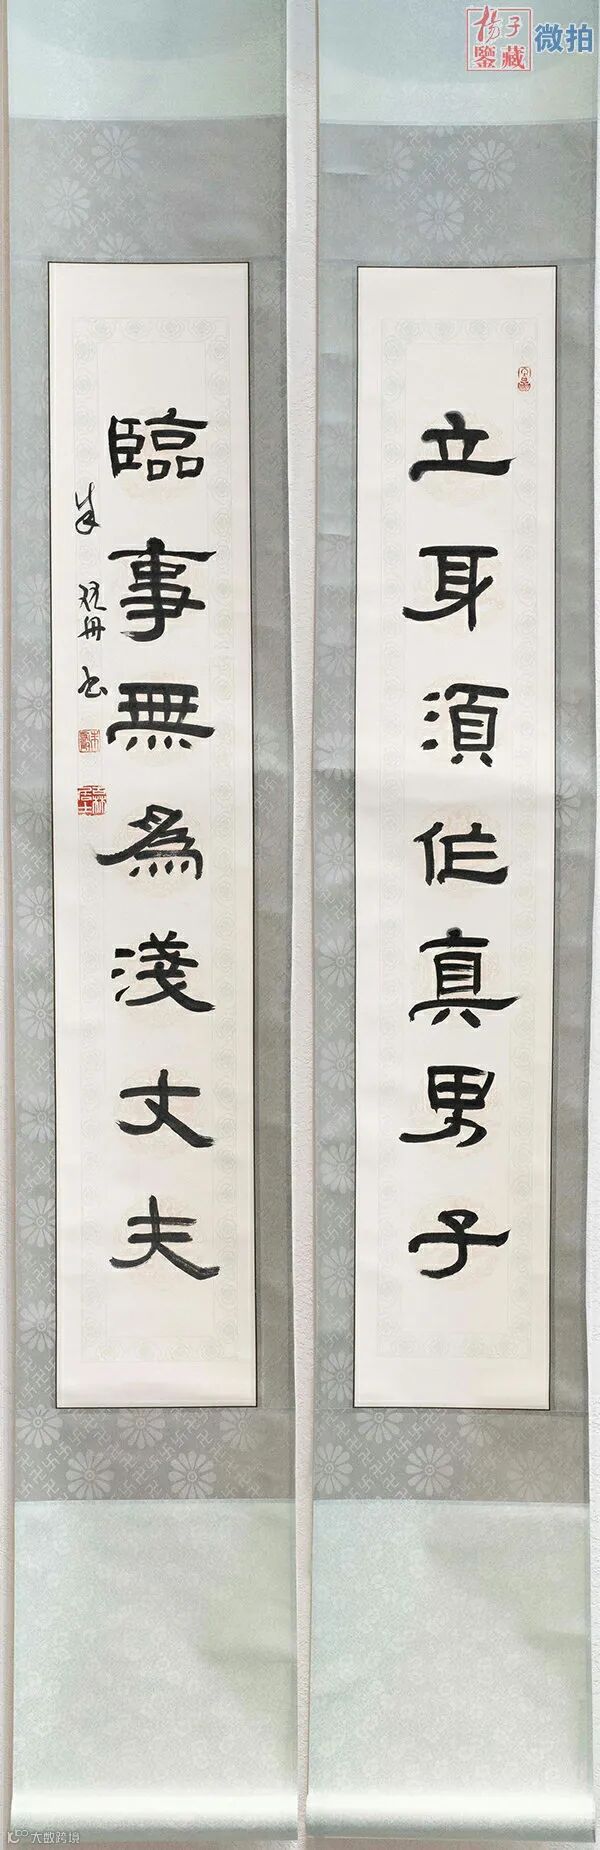 揚子
鑒藏
微拍
立身須作真男子
臨事無為淺丈夫
大数跨境